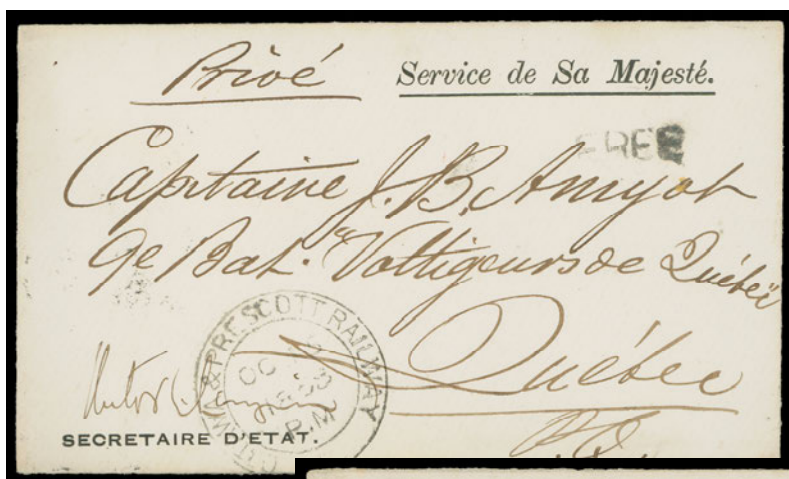 Privé Service de Sa Majesté.
FREE
Capitaine J. B. Amyot
9e Bat. "Voltigeurs de Québec
Québec
P.Q.
& PRESCOTT RAILWAY
OC
P.M
SECRETAIRE D'ETAT.